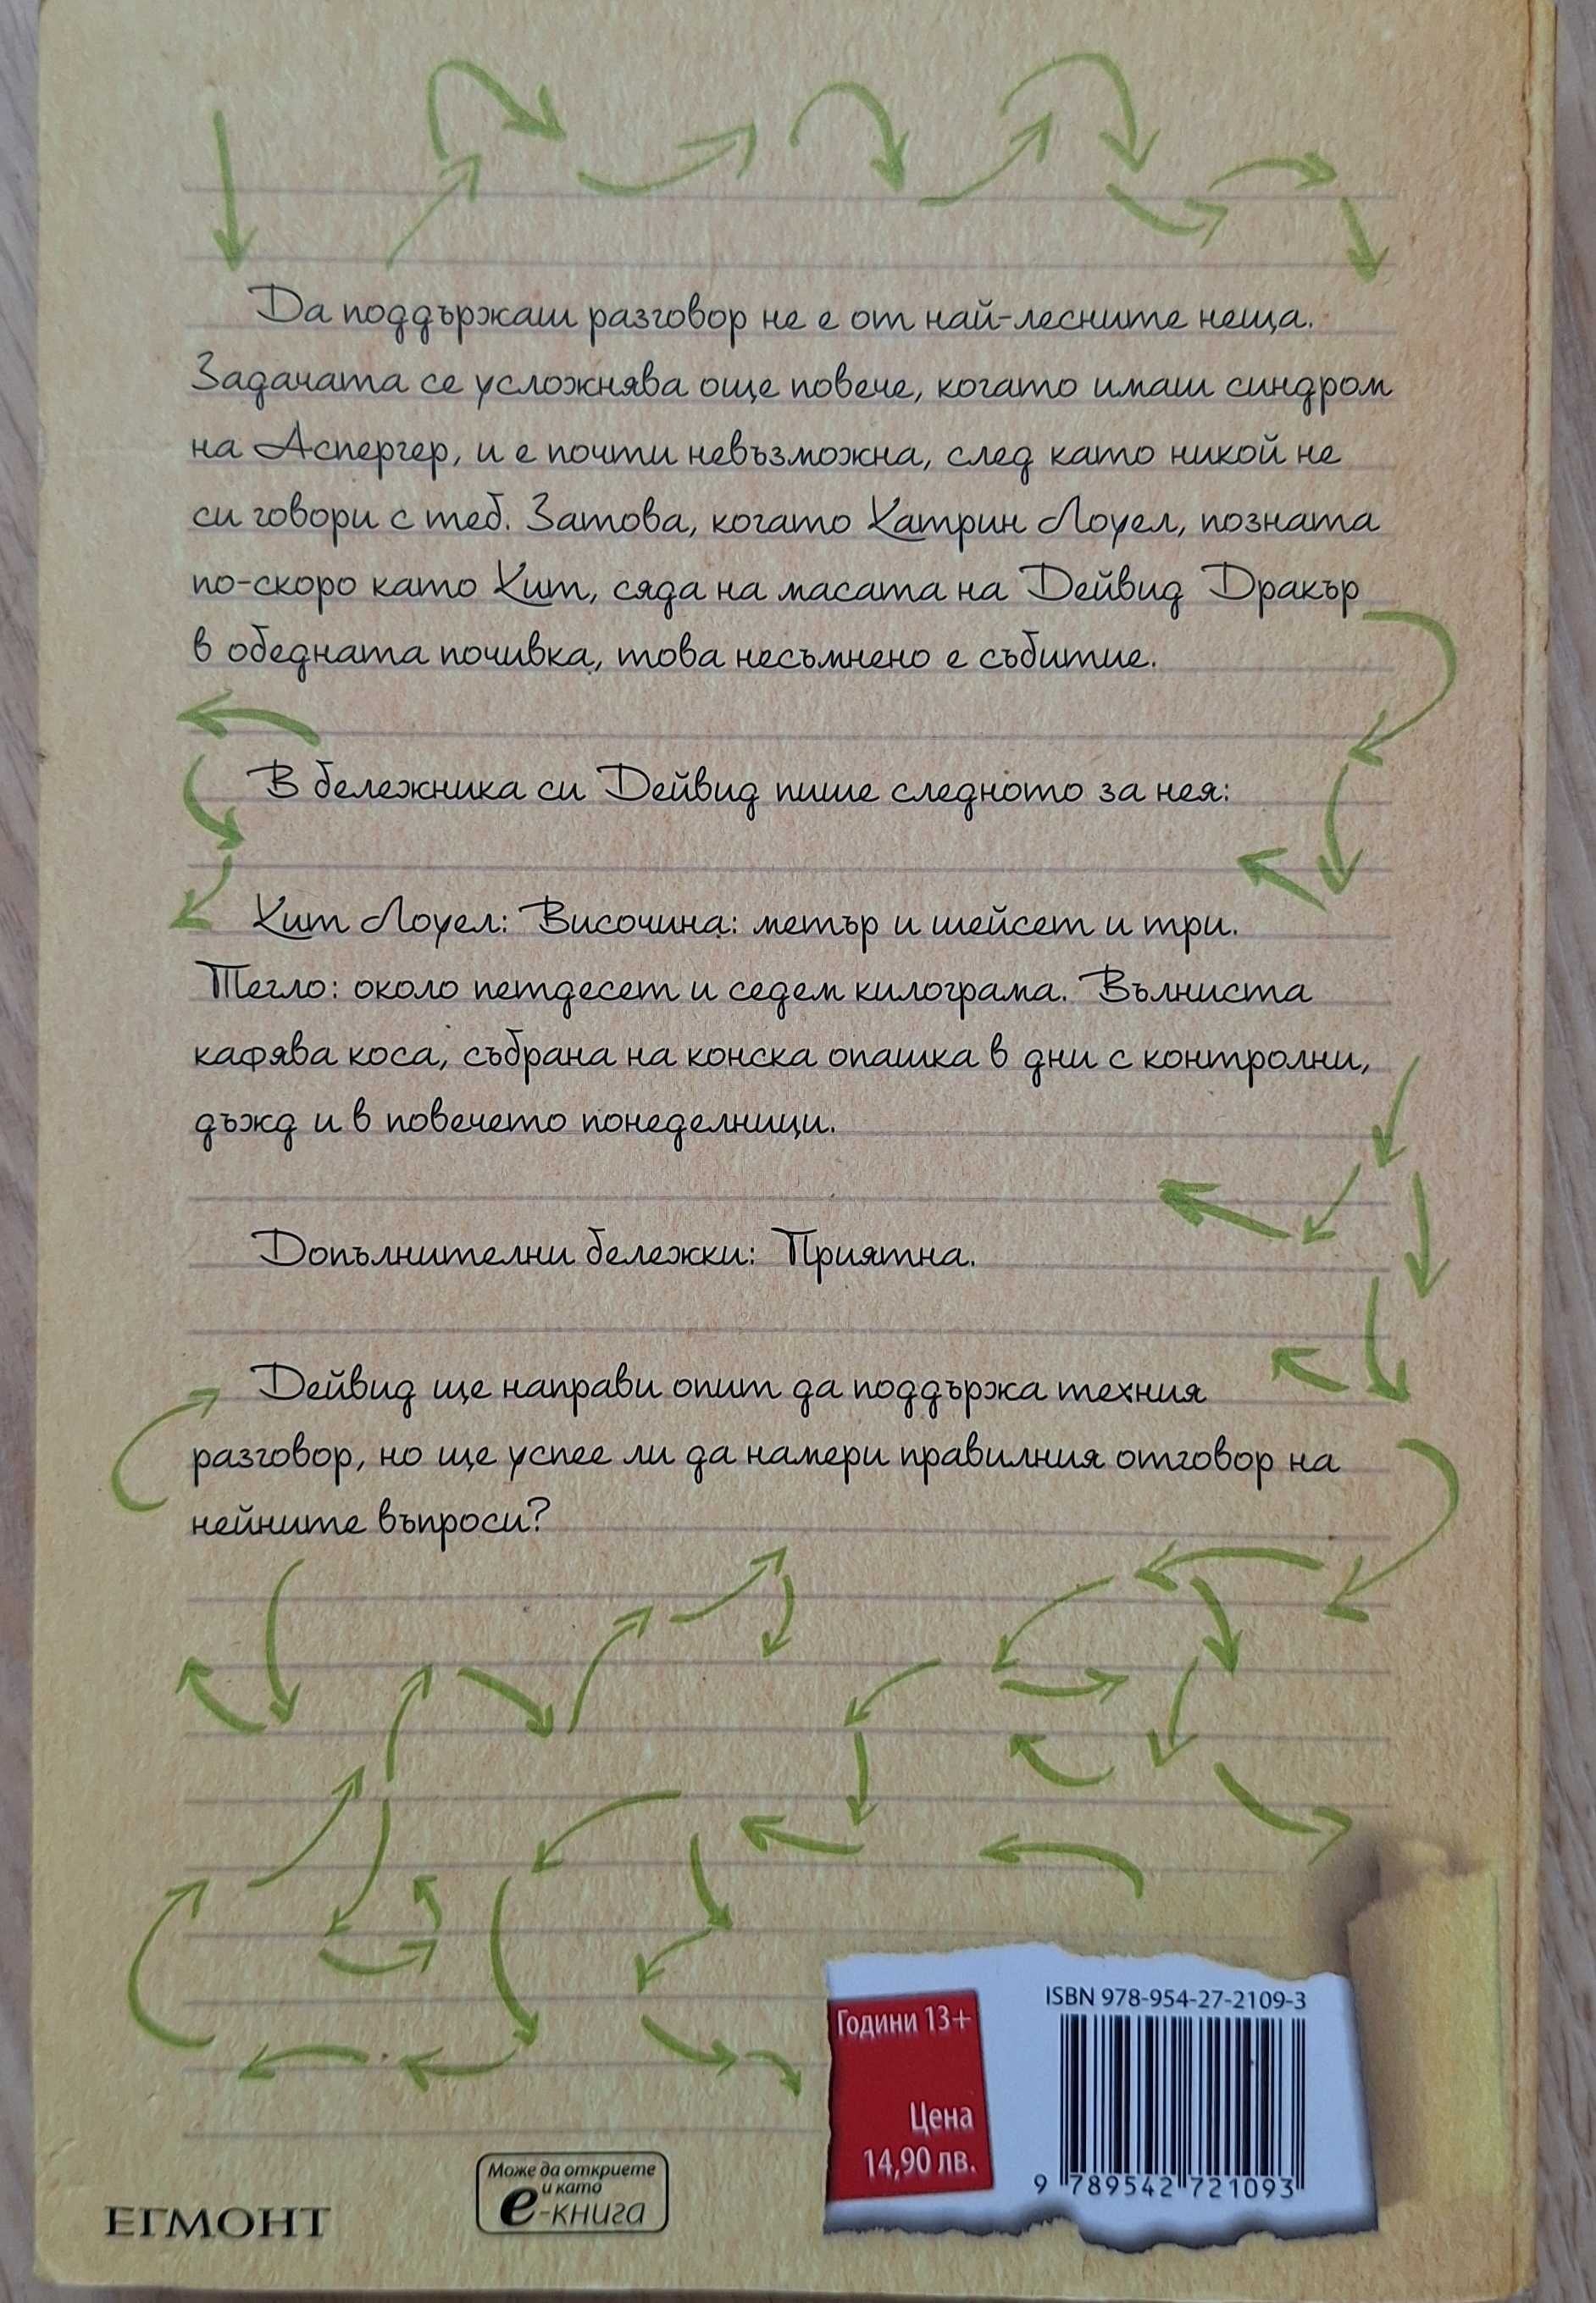 Да поддържаш разговор не е от най-лесните неща.
Задачата се усложнява още повече, когато имаш синдром
на Аспергер, и е почти невъзможна, след като никой не
си говори с теб. Затова, когато Катрин Лоуел, позната
по-скоро като Кит, сяда на масата на Дейвид Дракър
в обедната почивка, това несъмнено е събитие.
В бележника си Дейвид пише следното за нея:
Кит Лоуел: Височина: метър и шейсет и три.
Тегло: около петдесет и седем килограма. Вълниста
кафява коса, събрана на конска опашка в дни с контролни,
дъжд и в повечето понеделници.
Допълнителни бележки: Приятна.
Дейвид ще направи опит да поддържа техния
разговор, но ще успее ли да намери правилния отговор на
нейните въпроси?
ISBN 978-954-27-2109-3
Години 13+
Цена
14,90 лв.
9 789542 721093
Може да откриете
и като
е-книга
ЕГМОНТ